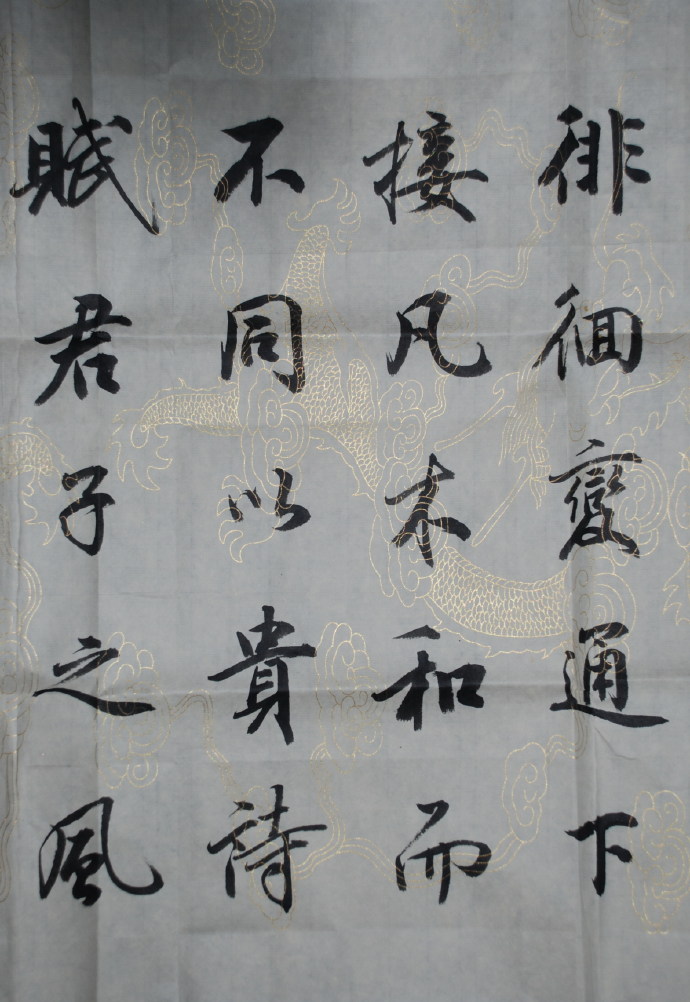 徘徊變通下
接凡木和而
不同以貴詩
賦君子之風